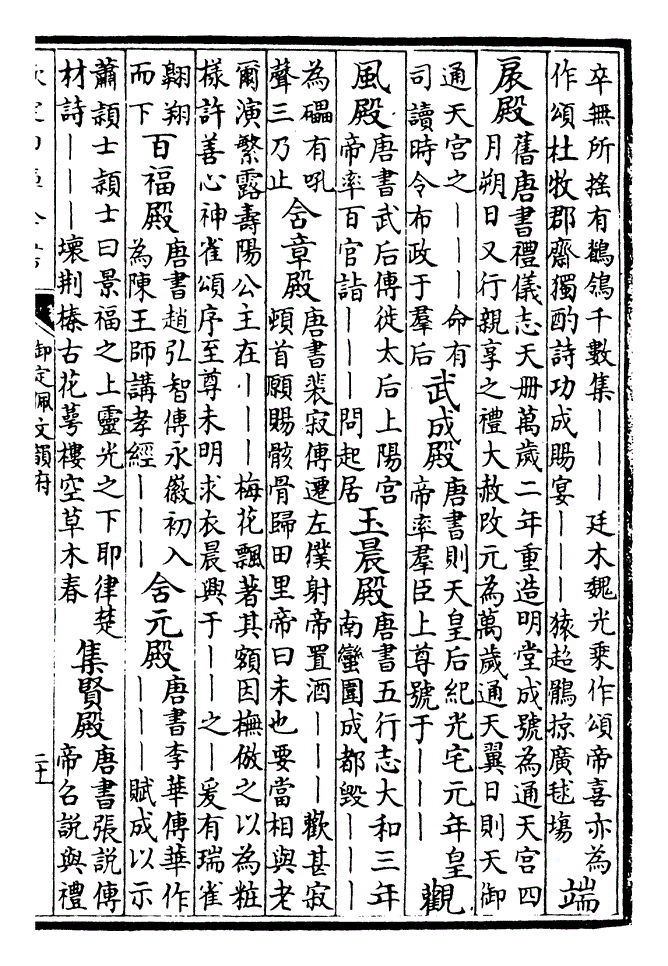 卒無所搖有鶺鴒千數集｜｜｜廷木魏光乗作頌帝喜亦為
作頌杜牧郡齋獨酌詩功成賜宴｜｜｜猿超鶻掠廣毬塲
端
扆殿
舊唐書禮儀志天册萬歲二年重造明堂成號為通天宫四
月朔日又行親享之禮大赦改元為萬歲通天翼日則天御
通天宫之｜｜｜命有
司讀時令布政于羣后
武成殿
唐書則天皇后紀光宅元年皇
帝率羣臣上尊號于｜｜｜
觀
風殿
唐書武后傳徙太后上陽宫
帝率百官詣｜｜｜問起居
玉晨殿
唐書五行志大和三年
南蠻圍成都毁｜｜｜
為礧有吼
聲三乃止
含章殿
唐書裴寂傳遷左僕射帝置酒｜｜｜歡甚寂
頓首願賜骸骨歸田里帝曰未也要當相與老
爾演繁露壽陽公主在｜｜｜梅花飄著其額因橅倣之以為粧
樣許善心神雀頌序至尊未明求衣晨興于｜｜之｜爰有瑞雀
翺翔
而下
百福殿
唐書趙弘智傳永徽初入
為陳王師講孝經｜｜｜
含元殿
唐書李華傳華作
｜｜｜賦成以示
蕭頴士頴士曰景福之上靈光之下耶律楚
材詩｜｜｜壞荆榛古花萼樓空草木春
集賢殿
唐書張説傳
帝召説與禮
欽定四庫全書
御定佩文韻府